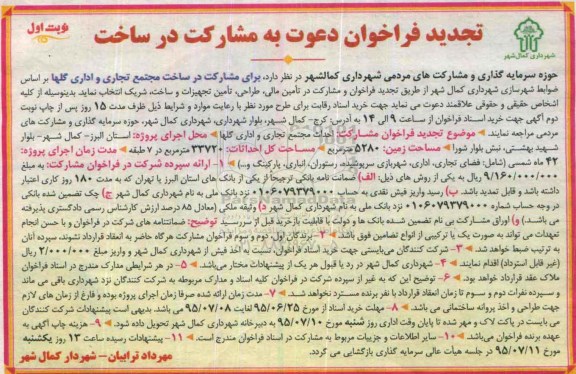 نوبت اول
تجدید فراخوان دعوت به مشارکت در ساخت
شهرداری کمال‌شهر
حوزه سرمایه گذاری و مشارکت های مردمی شهرداری کمالشهر در نظر دارد، برای مشارکت در ساخت مجتمع تجاری و اداری گلها بر اساس
ضوابط شهرسازی شهرداری کمال شهر از طریق تجدید فراخوان و مشارکت در تأمین مالی، طراحی، تأمین تجهیزات و ساخت، شریک انتخاب نماید. بدینوسیله از کلیه
اشخاص حقیقی و حقوقی علاقمند دعوت می نماید جهت خرید اسناد رقابت برای طرح مورد نظر با رعایت موارد و شرایط ذیل ظرف مدت ۱۵ روز پس از چاپ نوبت
دوم آگهی جهت خرید اسناد فراخوان از ساعت ۹ الی ۱۴ به آدرس: کرج- کمال شهر، بلوار شهرداری، شهرداری کمال شهر، حوزه سرمایه گذاری و مشارکت های
مردمی مراجعه نمایند. موضوع تجدید فراخوان مشارکت: احداث مجتمع تجاری و اداری گلها محل اجرای پروژه: استان البرز- کمال شهر- بلوار
شهید بهشتی، نبش بلوار شورا مساحت زمین: ۵۲۸۰ مترمربع مساحت کل احداثات: ۳۳۷۲۰ مترمربع در ۷ طبقه مدت زمان اجرای پروژه:
۴۲ ماه شمسی (شامل: فضای تجاری، اداری، شهربازی سرپوشیده، رستوران، انباری، پارکینگ و...) ۱- ارائه سپرده شرکت در فراخوان مشارکت: به مبلغ
۹/۱۶۰/۰۰۰/۰۰۰ ریال به یکی از روش های ذیل: الف) ضمانت نامه بانکی ترجیحاً از یکی از بانک های استان البرز یا تهران که به مدت ۱۸۰ روز کاری اعتبار
داشته باشد و قابل تمدید باشد. ب) رسید واریز فیش نقدی به حساب ۰۱۰۶۰۷۹۳۷۹۰۰۰ نزد بانک ملی به نام شهرداری کمال شهر ج) چک تضمین شده بانکی
در وجه حساب شماره ۰۱۰۶۰۷۹۳۷۹۰۰۰ نزد بانک ملی به نام شهرداری کمال شهر د) وثیقه ملکی (معادل ۸۵ درصد ارزش کارشناس رسمی دادگستری پذیرفته
می باشد.) و) اوراق مشارکت بی نام تضمین شده بانک ها و دولت با قابلیت بازخرید قبل از سررسید توضیح: ضمانتنامه های شرکت در فراخوان و یا حسن انجام
تعهدات می تواند به صورت یک یا ترکیبی از انواع تضامین فوق باشد. ۲- برندگان اول، دوم و سوم فراخوان مشارکت هرگاه حاضر به انعقاد قرارداد نشوند، سپرده آنان
به ترتیب ضبط خواهد شد. ۳- شرکت کنندگان می‌بایستی جهت خرید اسناد فراخوان، نسبت به اخذ فیش از شهرداری کمال شهر و واریز مبلغ ۲/۰۰۰/۰۰۰ ریال
(غیر قابل استرداد) اقدام نمایند. ۴- شهرداری کمال شهر در رد یا قبول هر یک از پیشنهادات مختار می‌باشد. ۵- در هر شرایطی مدارک مندرج در اسناد فراخوان
ملاک عقد قرارداد خواهد بود. ۶- توضیح این که به غیر از سپرده شرکت در فراخوان کلیه اسناد و مدارک مربوطه به شرکت کنندگان نزد شهرداری باقی می ماند
و سپرده نفرات دوم و سوم تا زمان انعقاد قرارداد با نفر برنده مسترد نخواهد شد. ۷- مدت زمان ارائه شده صرفاً زمان اجرای پروژه بوده و فارغ از زمان های لازم
جهت طراحی و اخذ پروانه ساختمانی می باشد. ۸- مهلت خرید اسناد از مورخ ۹۵/۰۶/۲۵ لغایت ۹۵/۰۷/۰۸ می باشد. بدیهی است پیشنهادات شرکت کنندگان
می بایست در پاکت لاک و مهر شده تا پایان وقت اداری روز شنبه مورخ ۹۵/۰۷/۱۰ به دبیرخانه شهرداری کمال شهر تحویل داده شود. ۹- هزینه چاپ آگهی به
عهده برنده فراخوان می‌باشد. ۱۰- سایر اطلاعات و جزییات مربوط به مشارکت در اسناد فراخوان مندرج است. ۱۱- پیشنهادات رسیده ساعت ۱۳ روز یکشنبه
مورخ ۹۵/۰۷/۱۱ در جلسه هیأت عالی سرمایه گذاری بازگشایی می گردد.
مهرداد ترابیان- شهردار کمال شهر